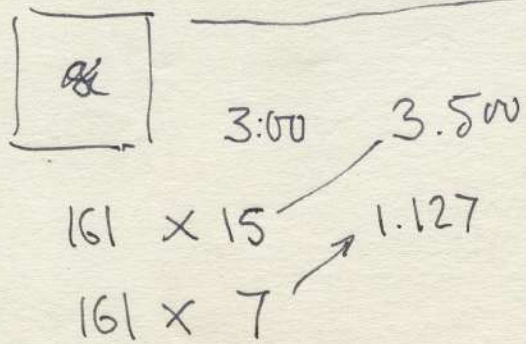 3:00 3.500
161 × 15 1.127
161 × 7